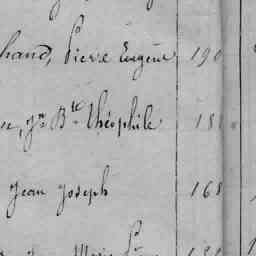 hand, Pierre Eugène 190
e, Jn Bte Théophile 181
Jean Joseph 168